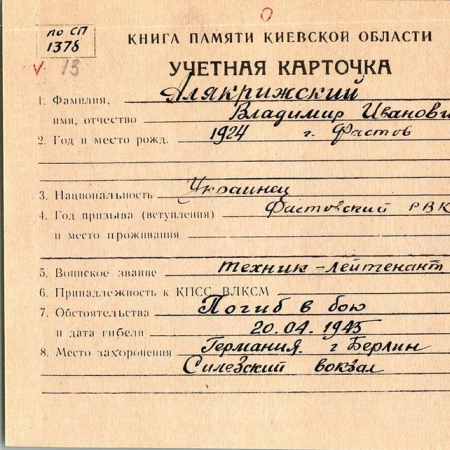 по СП
1378
13
КНИГА ПАМЯТИ КИЕВСКОЙ ОБЛАСТИ
УЧЕТНАЯ КАРТОЧКА
1. Фамилия, Алякрижский
имя, отчество Владимир Иванови
2. Год и место рожд. 1924 г. Фастов
3. Национальность Украинец
4. Год призыва (вступления) Фастовский РВК
и место проживания
5. Воинское звание техник-лейтенант
6. Принадлежность к КПСС, ВЛКСМ
7. Обстоятельства Погиб в бою
и дата гибели 20.04.1945
8. Место захоронения Германия г Берлин
Силезский вокзал